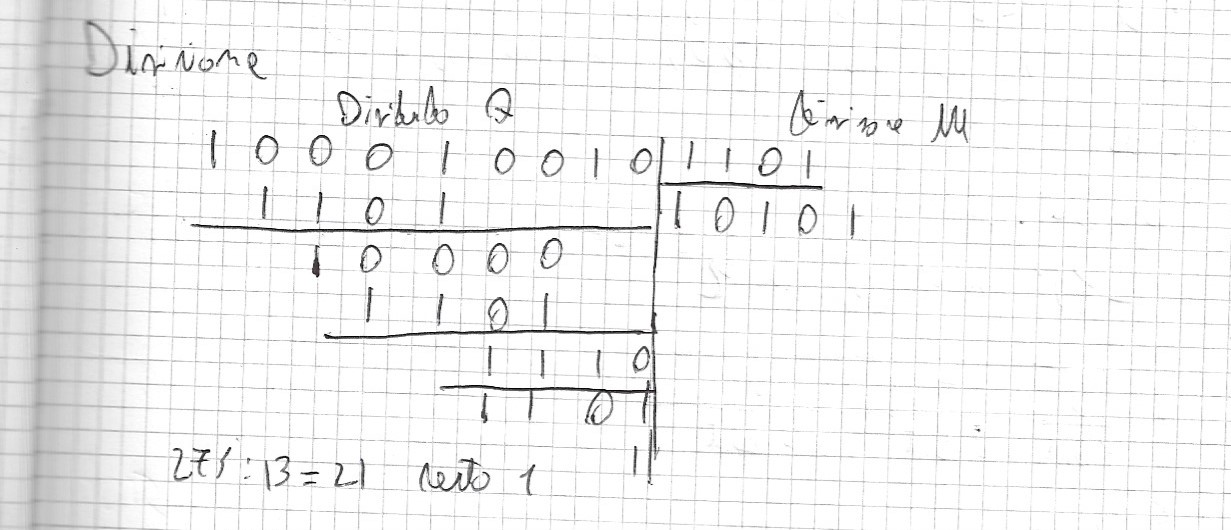 Divisione
Dividendo Q Divisore M
1 0 0 0 1 0 0 1 0 1 1 0 1
1 1 0 1 1 0 1 0 1
1 0 0 0 0
1 1 0 1
1 1 1 0
1 1 0 1
1
: 13 = 21 resto 1